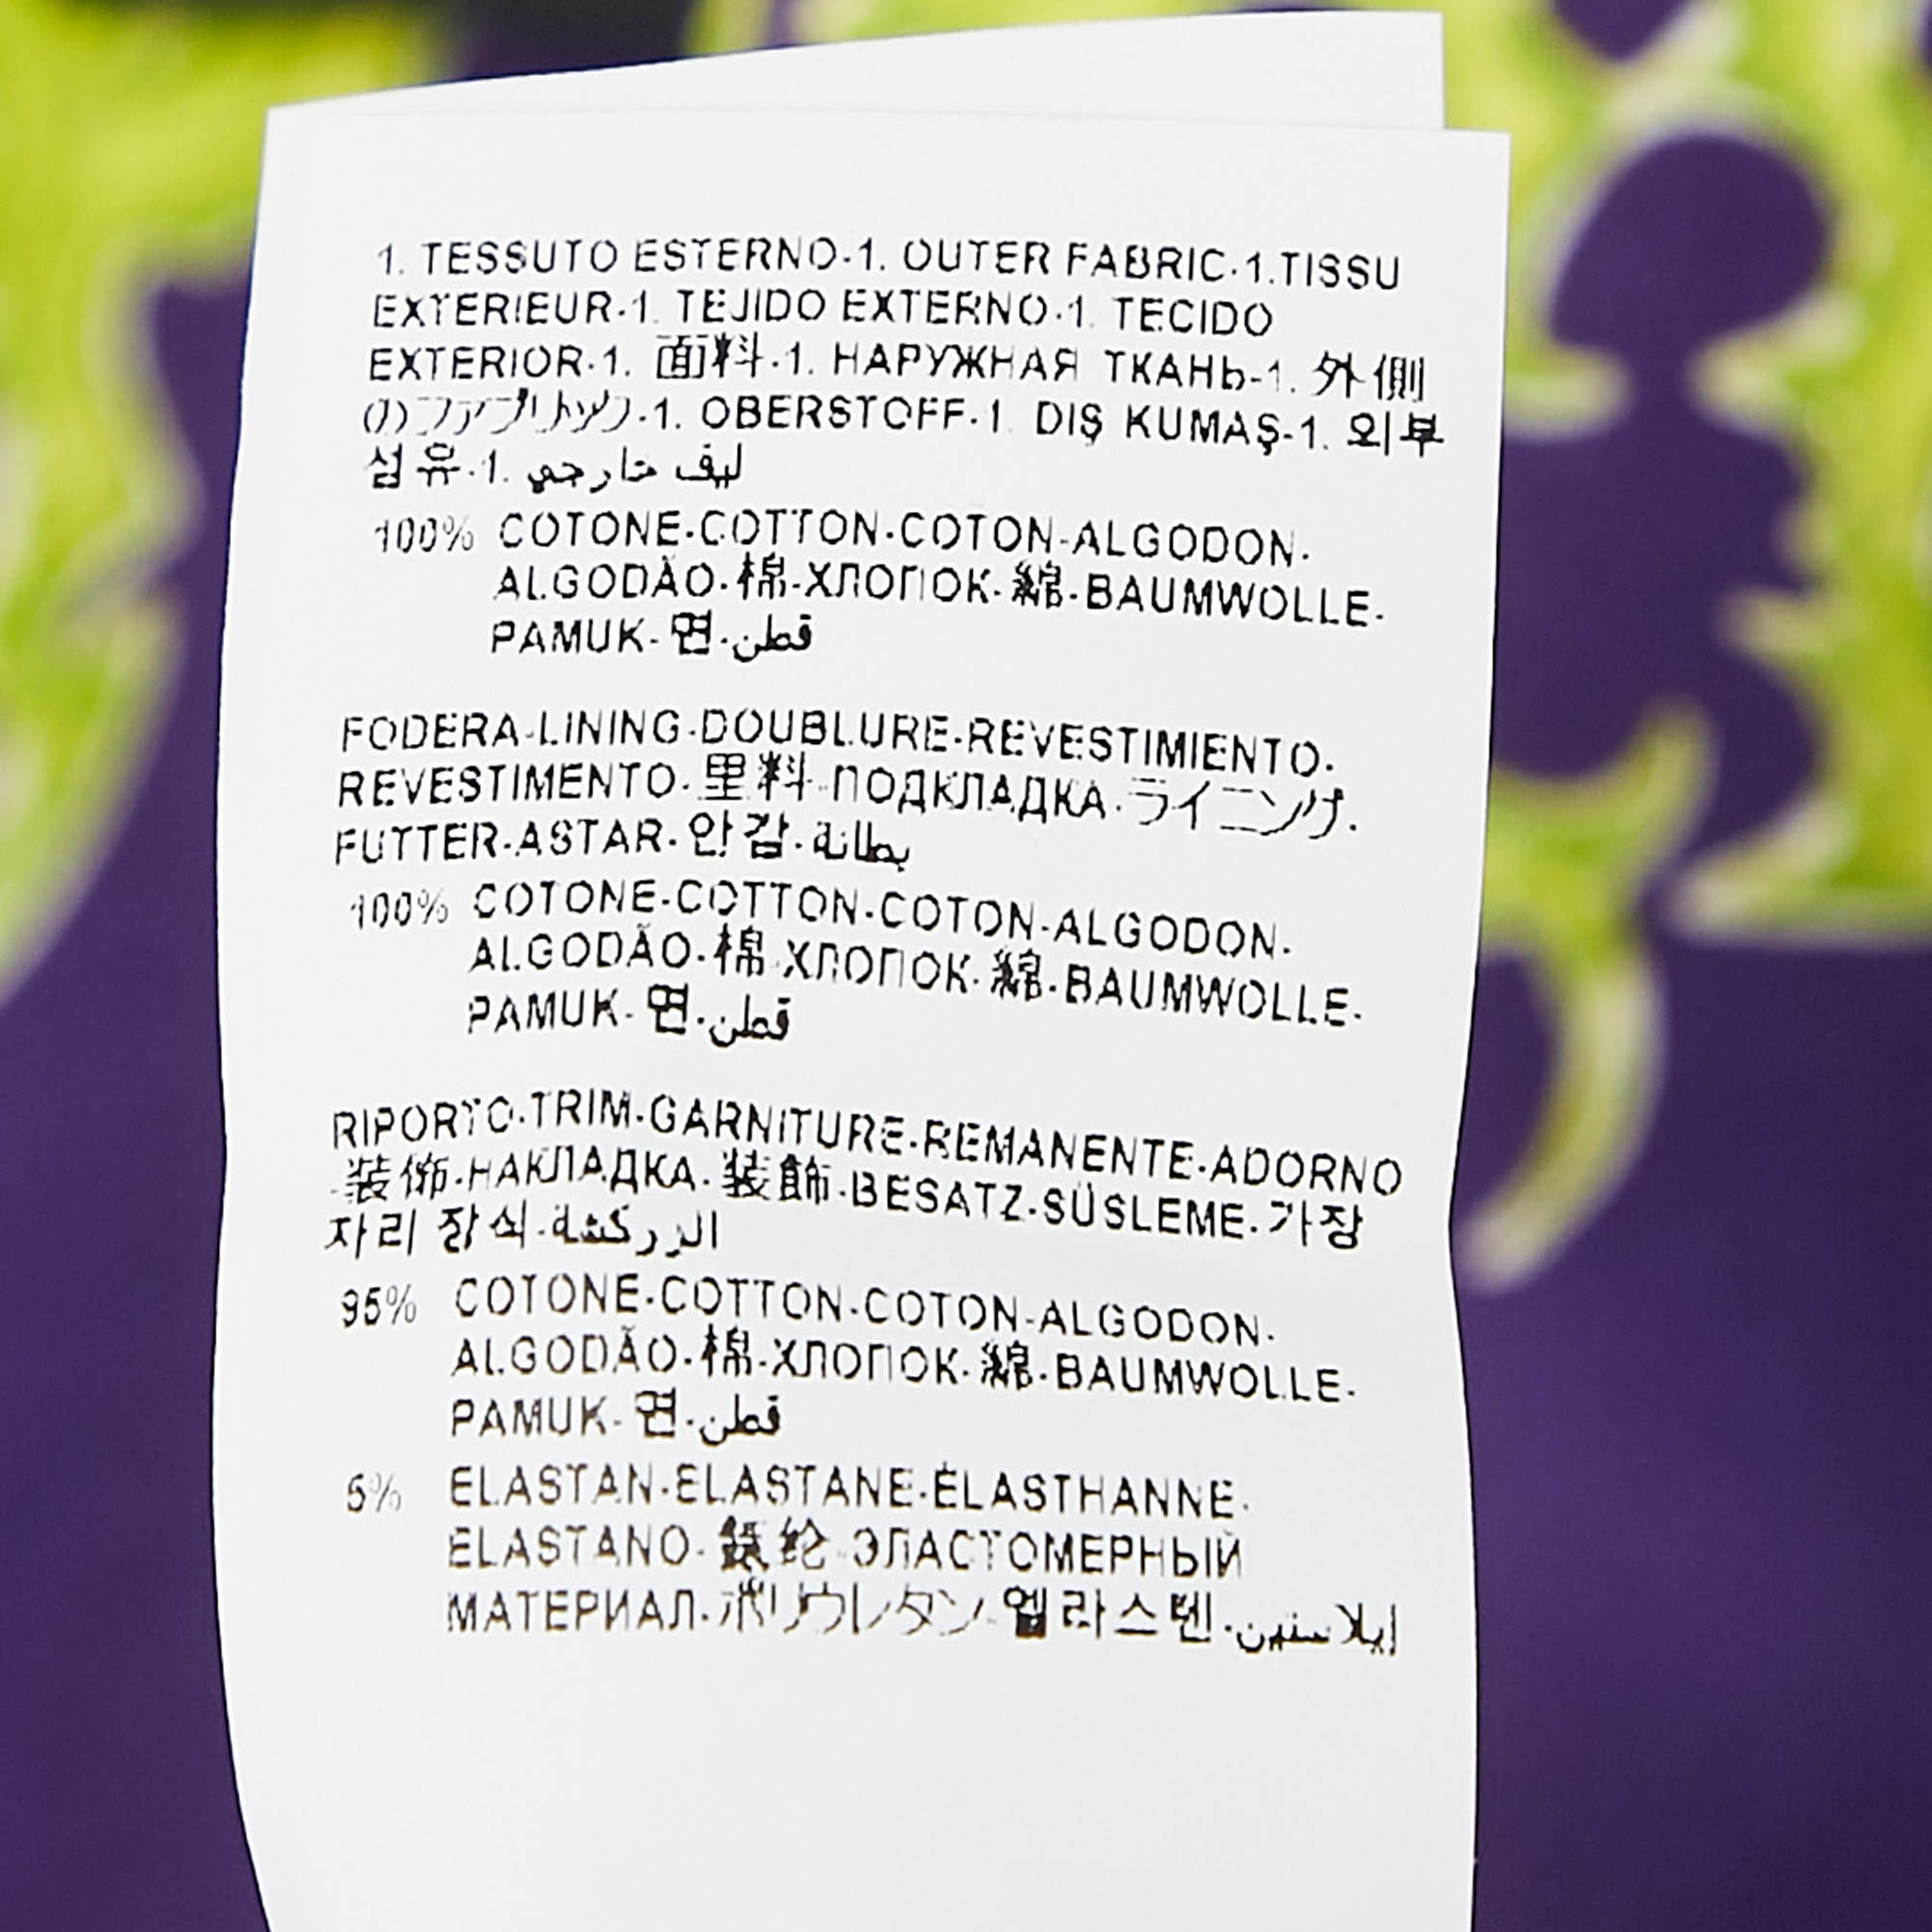 1. TESSUTO ESTERNO-1. OUTER FABRIC-1.TISSU
EXTERIEUR-1. TEJIDO EXTERNO-1. TECIDO
EXTERIOR-1. 面料-1. НАРУЖНАЯ ТКАНЬ-1. 外側
のファブリック-1. OBERSTOFF-1. DIŞ KUMAŞ-1. 외부
섬유-1. ليف خارجي
100% COTONE-COTTON-COTON-ALGODON-
ALGODÃO-棉-ХЛОПОК-綿-BAUMWOLLE-
PAMUK-면-قطن
FODERA-LINING-DOUBLURE-REVESTIMIENTO-
REVESTIMENTO-里料-ПОДКЛАДКА-ライニング-
FUTTER-ASTAR-안감-بطانة
100% COTONE-COTTON-COTON-ALGODON-
ALGODÃO-棉-ХЛОПОК-綿-BAUMWOLLE-
PAMUK-면-قطن
RIPORTO-TRIM-GARNITURE-REMANENTE-ADORNO
-装饰-НАКЛАДКА-装飾-BESATZ-SÜSLEME-가장
자리 장식-الزركشة
95% COTONE-COTTON-COTON-ALGODON-
ALGODÃO-棉-ХЛОПОК-綿-BAUMWOLLE-
PAMUK-면-قطن
5% ELASTAN-ELASTANE-ÉLASTHANNE-
ELASTANO-氨纶-ЭЛАСТОМЕРНЫЙ
МАТЕРИАЛ-ポリウレタン-엘라스텐-إيلاستين